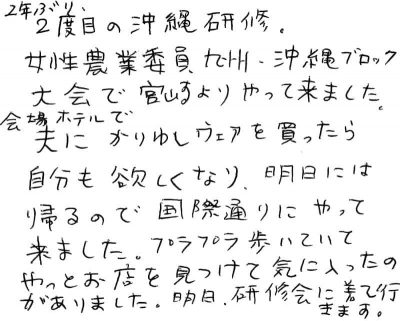 2年ぶり、
2度目の沖縄研修。
女性農業委員九州・沖縄ブロック
大会で宮崎よりやって来ました。
会場ホテルで
夫にかりゆしウェアを買ったら
自分も欲しくなり、明日には
帰るので国際通りにやって
来ました。プラプラ歩いていて
やっとお店を見つけて気に入ったの
がありました。明日、研修会に着て行
きます。